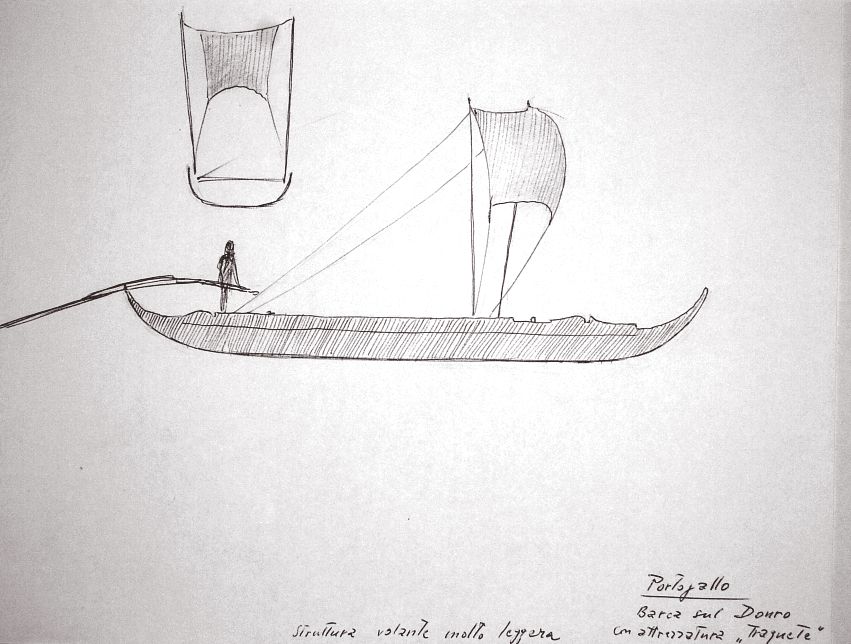 Portogallo
Barca sul Douro
con attrezzatura „Traquete"
struttura volante molto leggera